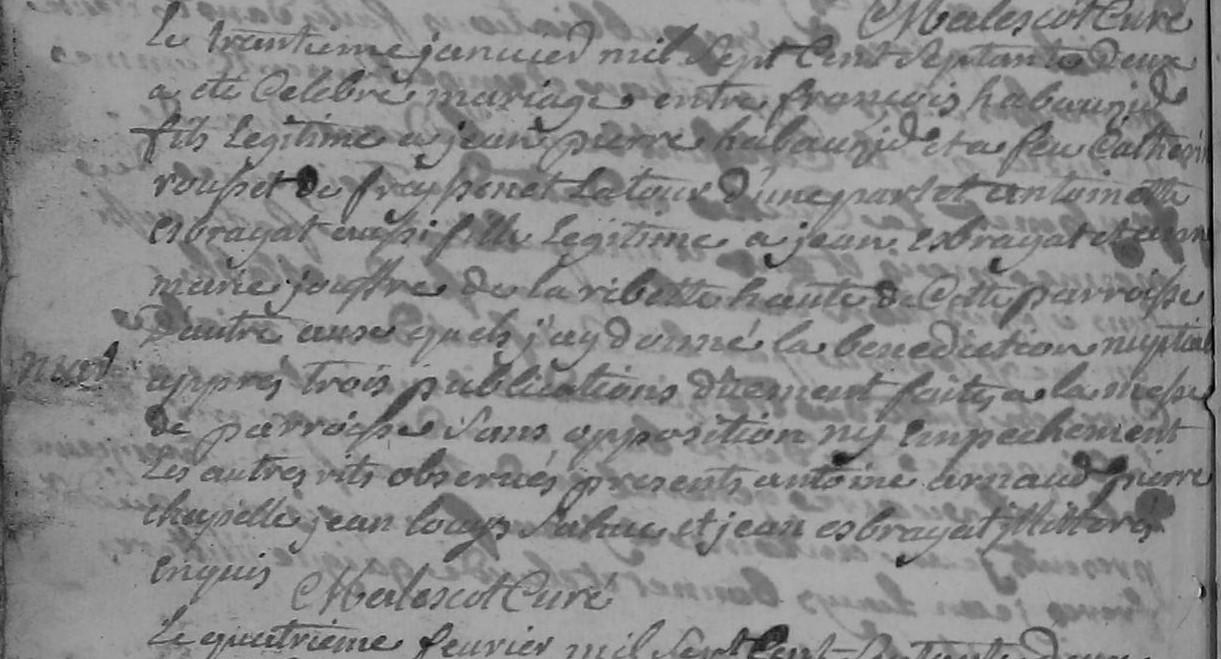 Malescot Curé
Le trantieme janvied mil Sept Cent Septante deux
a ete Celebré mariage entre francois habauzid
fils Legitime a jean pierre habauzid et a feu Catherin
rousset de frayssenet Latour d'une part et antoinette
Esbrayat aussi fille Legitime a jean esbrayat et anne
marie jouffre de la ribette haute de Cette parroisse
D'autre ausequels j'ay donné la benediction nuptial
appres trois publications düement faites a la messe
de parroisse Sans opposition ny Empechement
Les autres rits observés presents antoine arnaud pierre
Chapelle jean louys Sahuc et jean esbrayat illitterés
enquis
Malescot Curé
Le quatrieme fevrier mil Sept Cent Septante deux